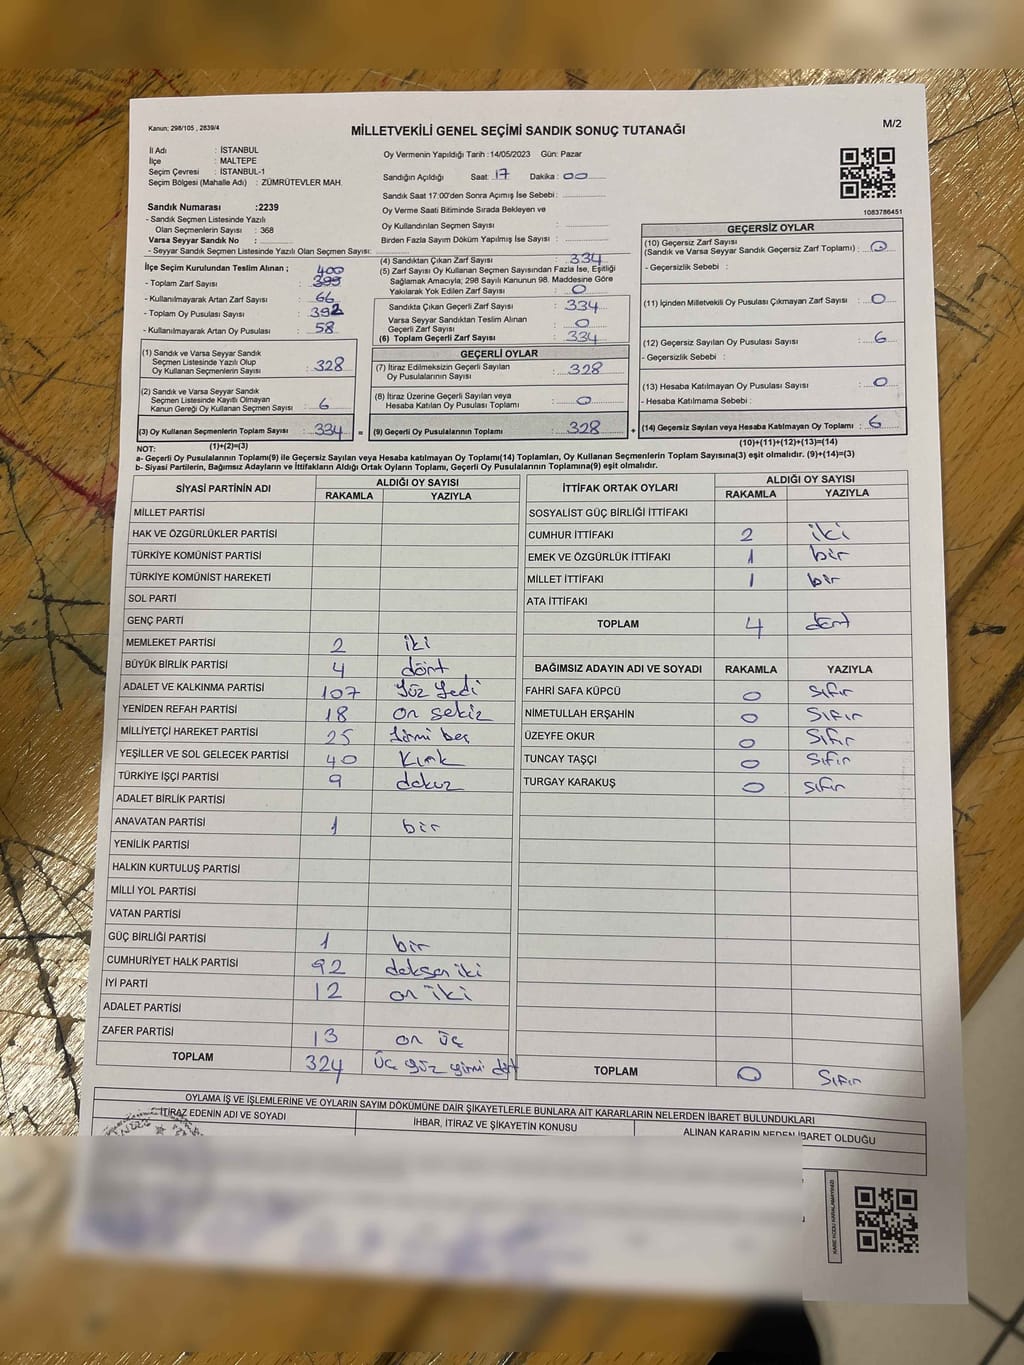 Kanun; 298/105 , 2839/4
MİLLETVEKİLİ GENEL SEÇİMİ SANDIK SONUÇ TUTANAĞI
M/2
İl Adı : İSTANBUL
İlçe : MALTEPE
Seçim Çevresi : İSTANBUL-1
Seçim Bölgesi (Mahalle Adı) : ZÜMRÜTEVLER MAH.
Sandık Numarası :2239
- Sandık Seçmen Listesinde Yazılı
Olan Seçmenlerin Sayısı : 368
Varsa Seyyar Sandık No :
- Seyyar Sandık Seçmen Listesinde Yazılı Olan Seçmen Sayısı:
Oy Vermenin Yapıldığı Tarih :14/05/2023 Gün: Pazar
Sandığın Açıldığı Saat: 17 Dakika : 00
Sandık Saat 17:00'den Sonra Açımış İse Sebebi :
Oy Verme Saati Bitiminde Sırada Bekleyen ve
Oy Kullandırılan Seçmen Sayısı :
Birden Fazla Sayım Döküm Yapılmış İse Sayısı :
1083786451
İlçe Seçim Kurulundan Teslim Alınan ;
400
- Toplam Zarf Sayısı : 399
- Kullanılmayarak Artan Zarf Sayısı : 66
- Toplam Oy Pusulası Sayısı : 392
- Kullanılmayarak Artan Oy Pusulası : 58
(1) Sandık ve Varsa Seyyar Sandık
Seçmen Listesinde Yazılı Olup
Oy Kullanan Seçmenlerin Sayısı : 328
(2) Sandık ve Varsa Seyyar Sandık
Seçmen Listesinde Kayıtlı Olmayan
Kanun Gereği Oy Kullanan Seçmen Sayısı : 6
(3) Oy Kullanan Seçmenlerin Toplam Sayısı : 334 =
(1)+(2)=(3)
(4) Sandıktan Çıkan Zarf Sayısı : 334
(5) Zarf Sayısı Oy Kullanan Seçmen Sayısından Fazla İse, Eşitliği
Sağlamak Amacıyla, 298 Sayılı Kanunun 98. Maddesine Göre
Yakılarak Yok Edilen Zarf Sayısı : 0
Sandıkta Çıkan Geçerli Zarf Sayısı : 334
Varsa Seyyar Sandıktan Teslim Alınan
Geçerli Zarf Sayısı : 0
(6) Toplam Geçerli Zarf Sayısı : 334
GEÇERLİ OYLAR
(7) İtiraz Edilmeksizin Geçerli Sayılan
Oy Pusulalarının Sayısı : 328
(8) İtiraz Üzerine Geçerli Sayılan veya
Hesaba Katılan Oy Pusulası Toplamı : 0
(9) Geçerli Oy Pusulalarının Toplamı : 328 +
GEÇERSİZ OYLAR
(10) Geçersiz Zarf Sayısı
(Sandık ve Varsa Seyyar Sandık Geçersiz Zarf Toplamı) : 0
- Geçersizlik Sebebi :
(11) İçinden Milletvekili Oy Pusulası Çıkmayan Zarf Sayısı : 0
(12) Geçersiz Sayılan Oy Pusulası Sayısı : 6
- Geçersizlik Sebebi :
(13) Hesaba Katılmayan Oy Pusulası Sayısı : 0
- Hesaba Katılmama Sebebi :
(14) Geçersiz Sayılan veya Hesaba Katılmayan Oy Toplamı : 6
(10)+(11)+(12)+(13)=(14)
NOT:
a- Geçerli Oy Pusulalarının Toplamı(9) ile Geçersiz Sayılan veya Hesaba katılmayan Oy Toplamı(14) Toplamları, Oy Kullanan Seçmenlerin Toplam Sayısına(3) eşit olmalıdır. (9)+(14)=(3)
b- Siyasi Partilerin, Bağımsız Adayların ve İttifakların Aldığı Ortak Oyların Toplamı, Geçerli Oy Pusulalarının Toplamına(9) eşit olmalıdır.
SİYASİ PARTİNİN ADI ALDIĞI OY SAYISI
RAKAMLA YAZIYLA
MİLLET PARTİSİ
HAK VE ÖZGÜRLÜKLER PARTİSİ
TÜRKİYE KOMÜNİST PARTİSİ
TÜRKİYE KOMÜNİST HAREKETİ
SOL PARTİ
GENÇ PARTİ
MEMLEKET PARTİSİ 2 iki
BÜYÜK BİRLİK PARTİSİ 4 dört
ADALET VE KALKINMA PARTİSİ 107 Yüz Yedi
YENİDEN REFAH PARTİSİ 18 on sekiz
MİLLİYETÇİ HAREKET PARTİSİ 25 Yirmi beş
YEŞİLLER VE SOL GELECEK PARTİSİ 40 Kırk
TÜRKİYE İŞÇİ PARTİSİ 9 dokuz
ADALET BİRLİK PARTİSİ
ANAVATAN PARTİSİ 1 bir
YENİLİK PARTİSİ
HALKIN KURTULUŞ PARTİSİ
MİLLİ YOL PARTİSİ
VATAN PARTİSİ
GÜÇ BİRLİĞİ PARTİSİ 1 bir
CUMHURİYET HALK PARTİSİ 92 doksan iki
İYİ PARTİ 12 on iki
ADALET PARTİSİ
ZAFER PARTİSİ 13 on üç
TOPLAM 324 üç yüz yirmi dört
İTTİFAK ORTAK OYLARI ALDIĞI OY SAYISI
RAKAMLA YAZIYLA
SOSYALİST GÜÇ BİRLİĞİ İTTİFAKI
CUMHUR İTTİFAKI 2 iki
EMEK VE ÖZGÜRLÜK İTTİFAKI 1 bir
MİLLET İTTİFAKI 1 bir
ATA İTTİFAKI
TOPLAM 4 dört
BAĞIMSIZ ADAYIN ADI VE SOYADI RAKAMLA YAZIYLA
FAHRİ SAFA KÜPCÜ 0 Sıfır
NİMETULLAH ERŞAHİN 0 Sıfır
ÜZEYFE OKUR 0 Sıfır
TUNCAY TAŞÇI 0 Sıfır
TURGAY KARAKUŞ 0 Sıfır
TOPLAM 0 Sıfır
OYLAMA İŞ VE İŞLEMLERİNE VE OYLARIN SAYIM DÖKÜMÜNE DAİR ŞİKAYETLERLE BUNLARA AİT KARARLARIN NELERDEN İBARET BULUNDUKLARI
İTİRAZ EDENİN ADI VE SOYADI İHBAR, İTİRAZ VE ŞİKAYETİN KONUSU ALINAN KARARIN NEDEN İBARET OLDUĞU
KARE KODU KARALAMAYINIZ!